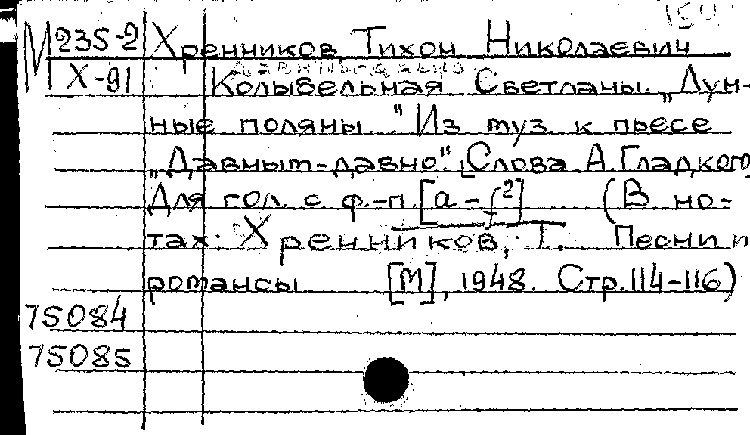 М 235-2 Хренников Тихон Николаевич
Х-91 Колыбельная Светланы. „Лун-
ные поляны." Из муз. к пьесе
„Давным-давно". [Слова А. Гладкого
Для гол. с ф.-п. [a - f²] (В но-
тах: Хренников, Т. Песни и
романсы. [М], 1948. Стр. 114-116)
75084
75085